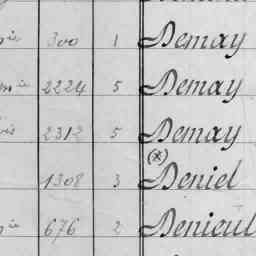 300 1 Demay
2224 5 Demay
2312 5 Demay
(x)
1308 3 Deniel
676 2 Denieul